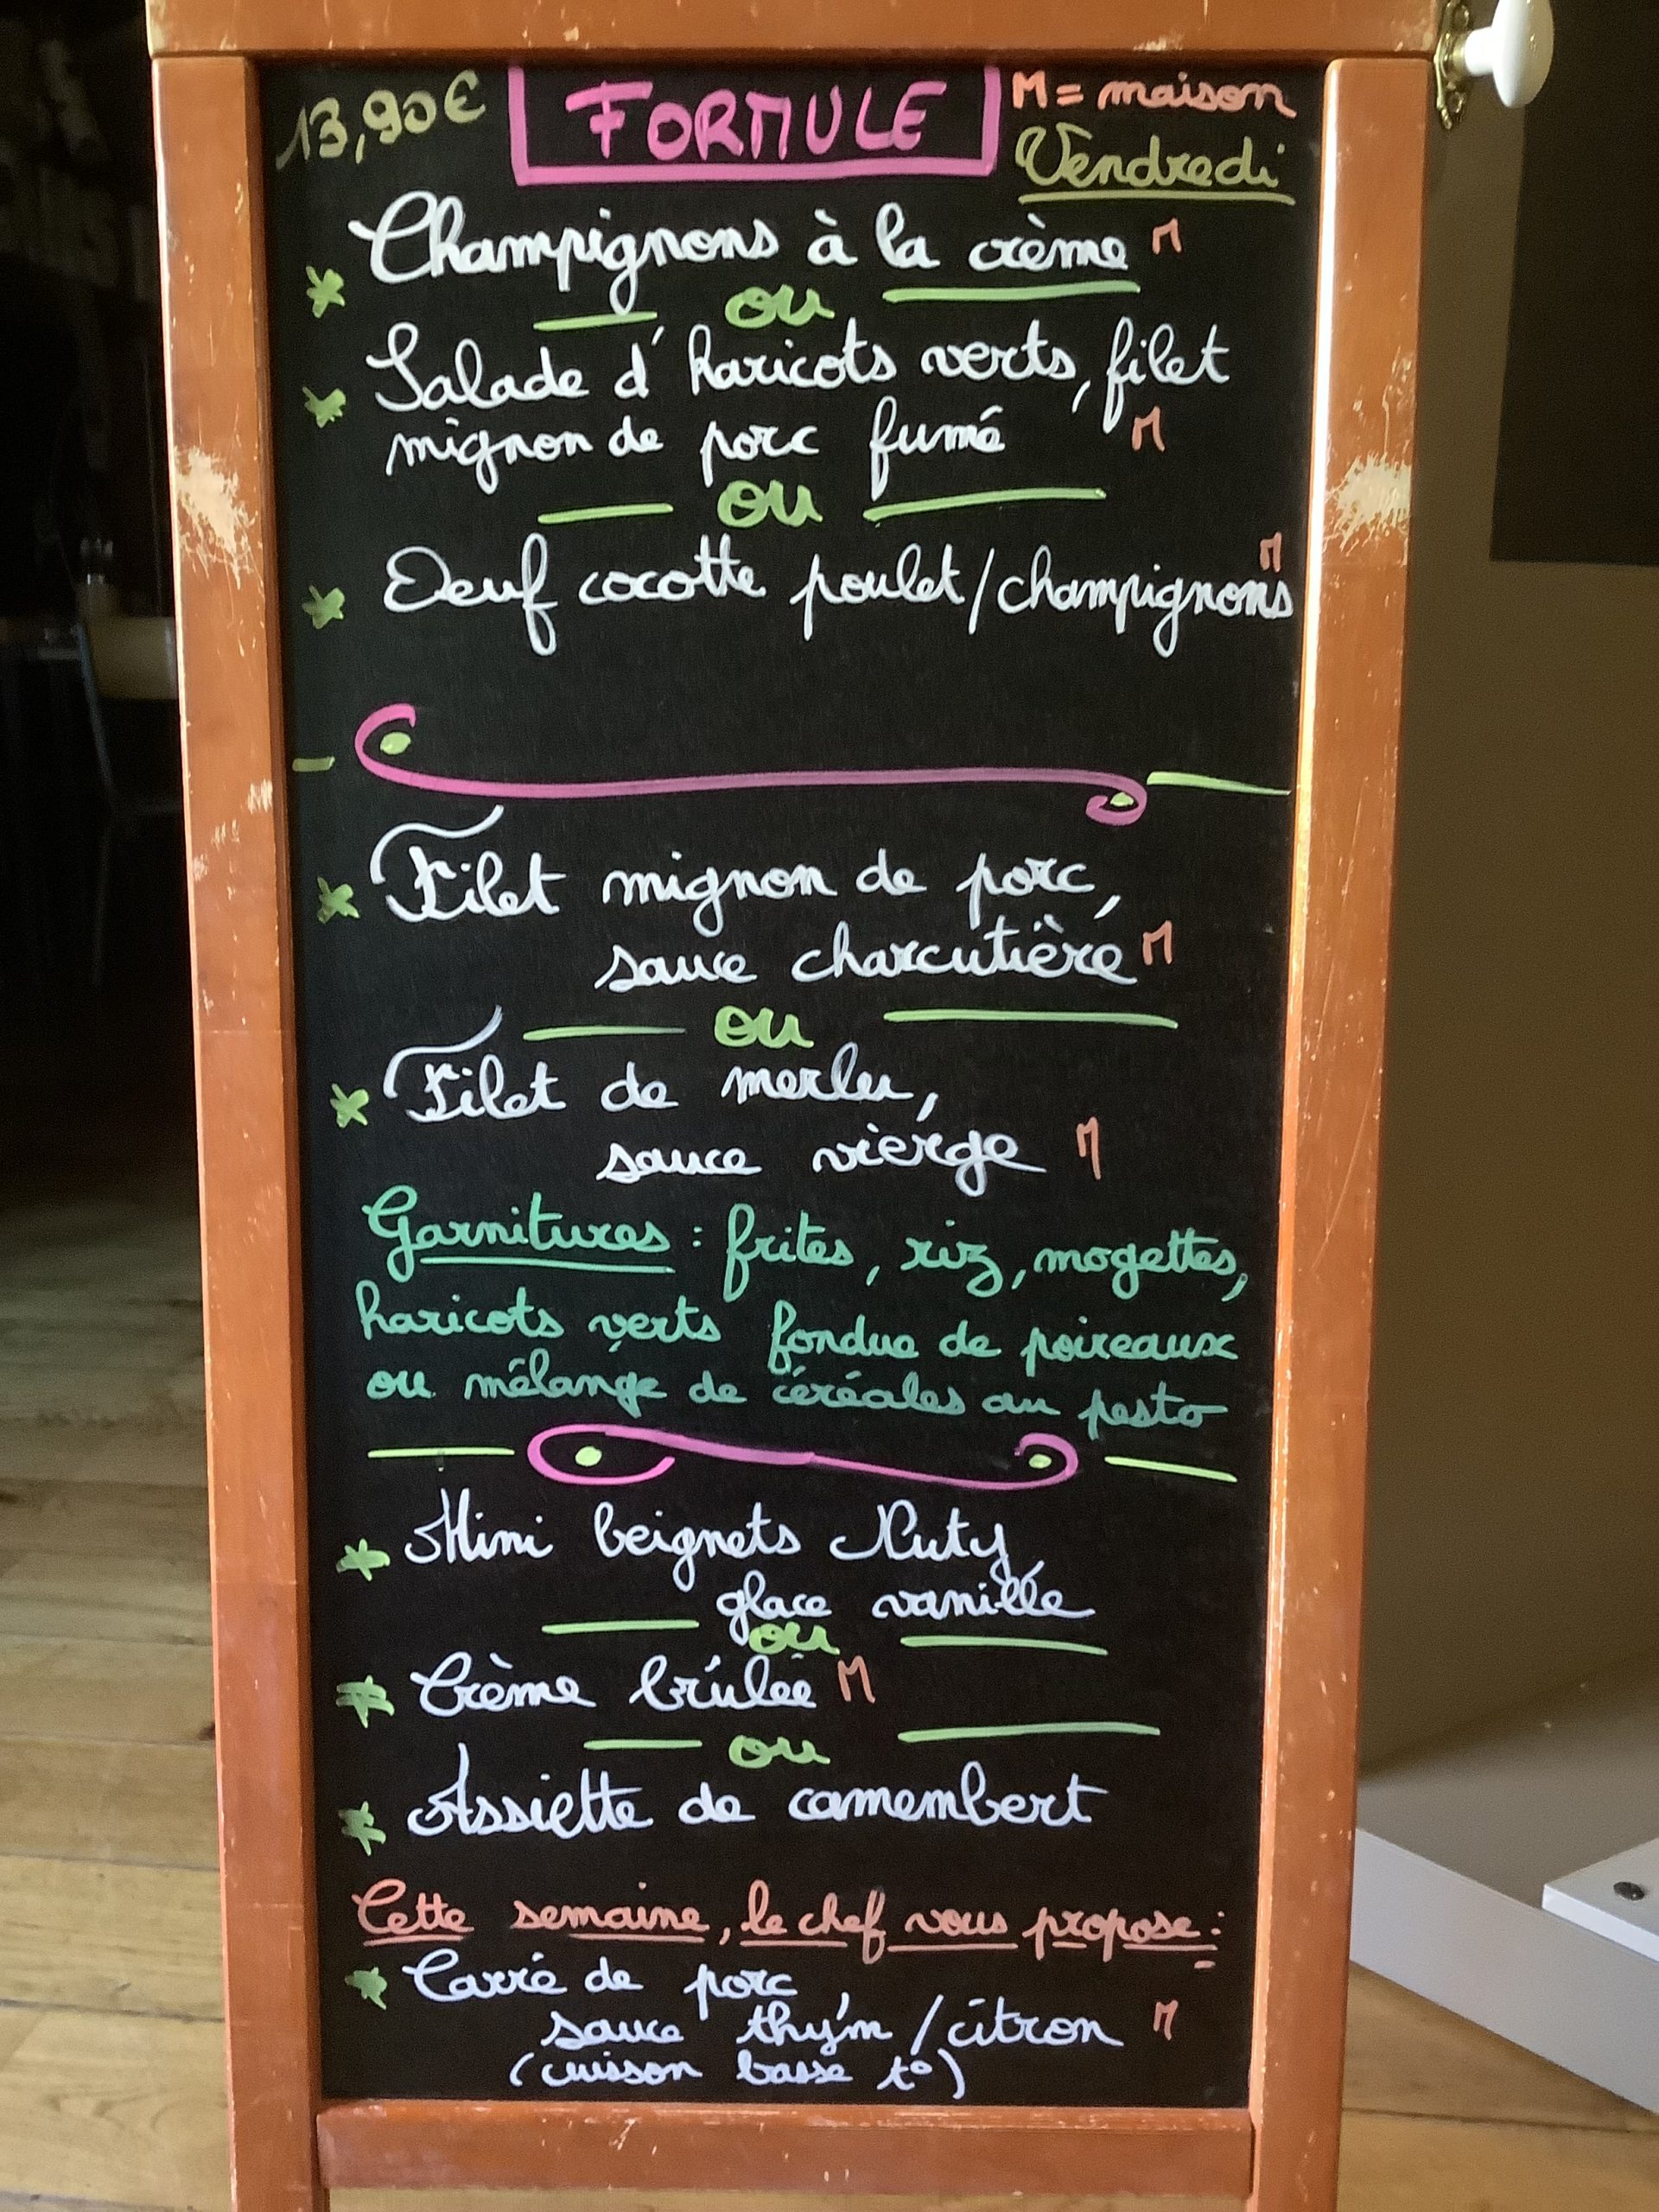 13,90€ FORMULE M = maison
Vendredi
Champignons à la crème M
ou
Salade d'haricots verts, filet
mignon de porc fumé M
ou
Oeuf cocotte poulet/champignons M
Filet mignon de porc,
sauce charcutière M
ou
Filet de merlu,
sauce vierge M
Garnitures : frites, riz, mogettes,
haricots verts, fondue de poireaux
ou mélange de céréales au pesto
Mini beignets Nuty,
glace vanille
ou
Crème brûlée M
ou
Assiette de camembert
Cette semaine, le chef vous propose :
Carré de porc,
sauce thym/citron M
(cuisson basse t°)